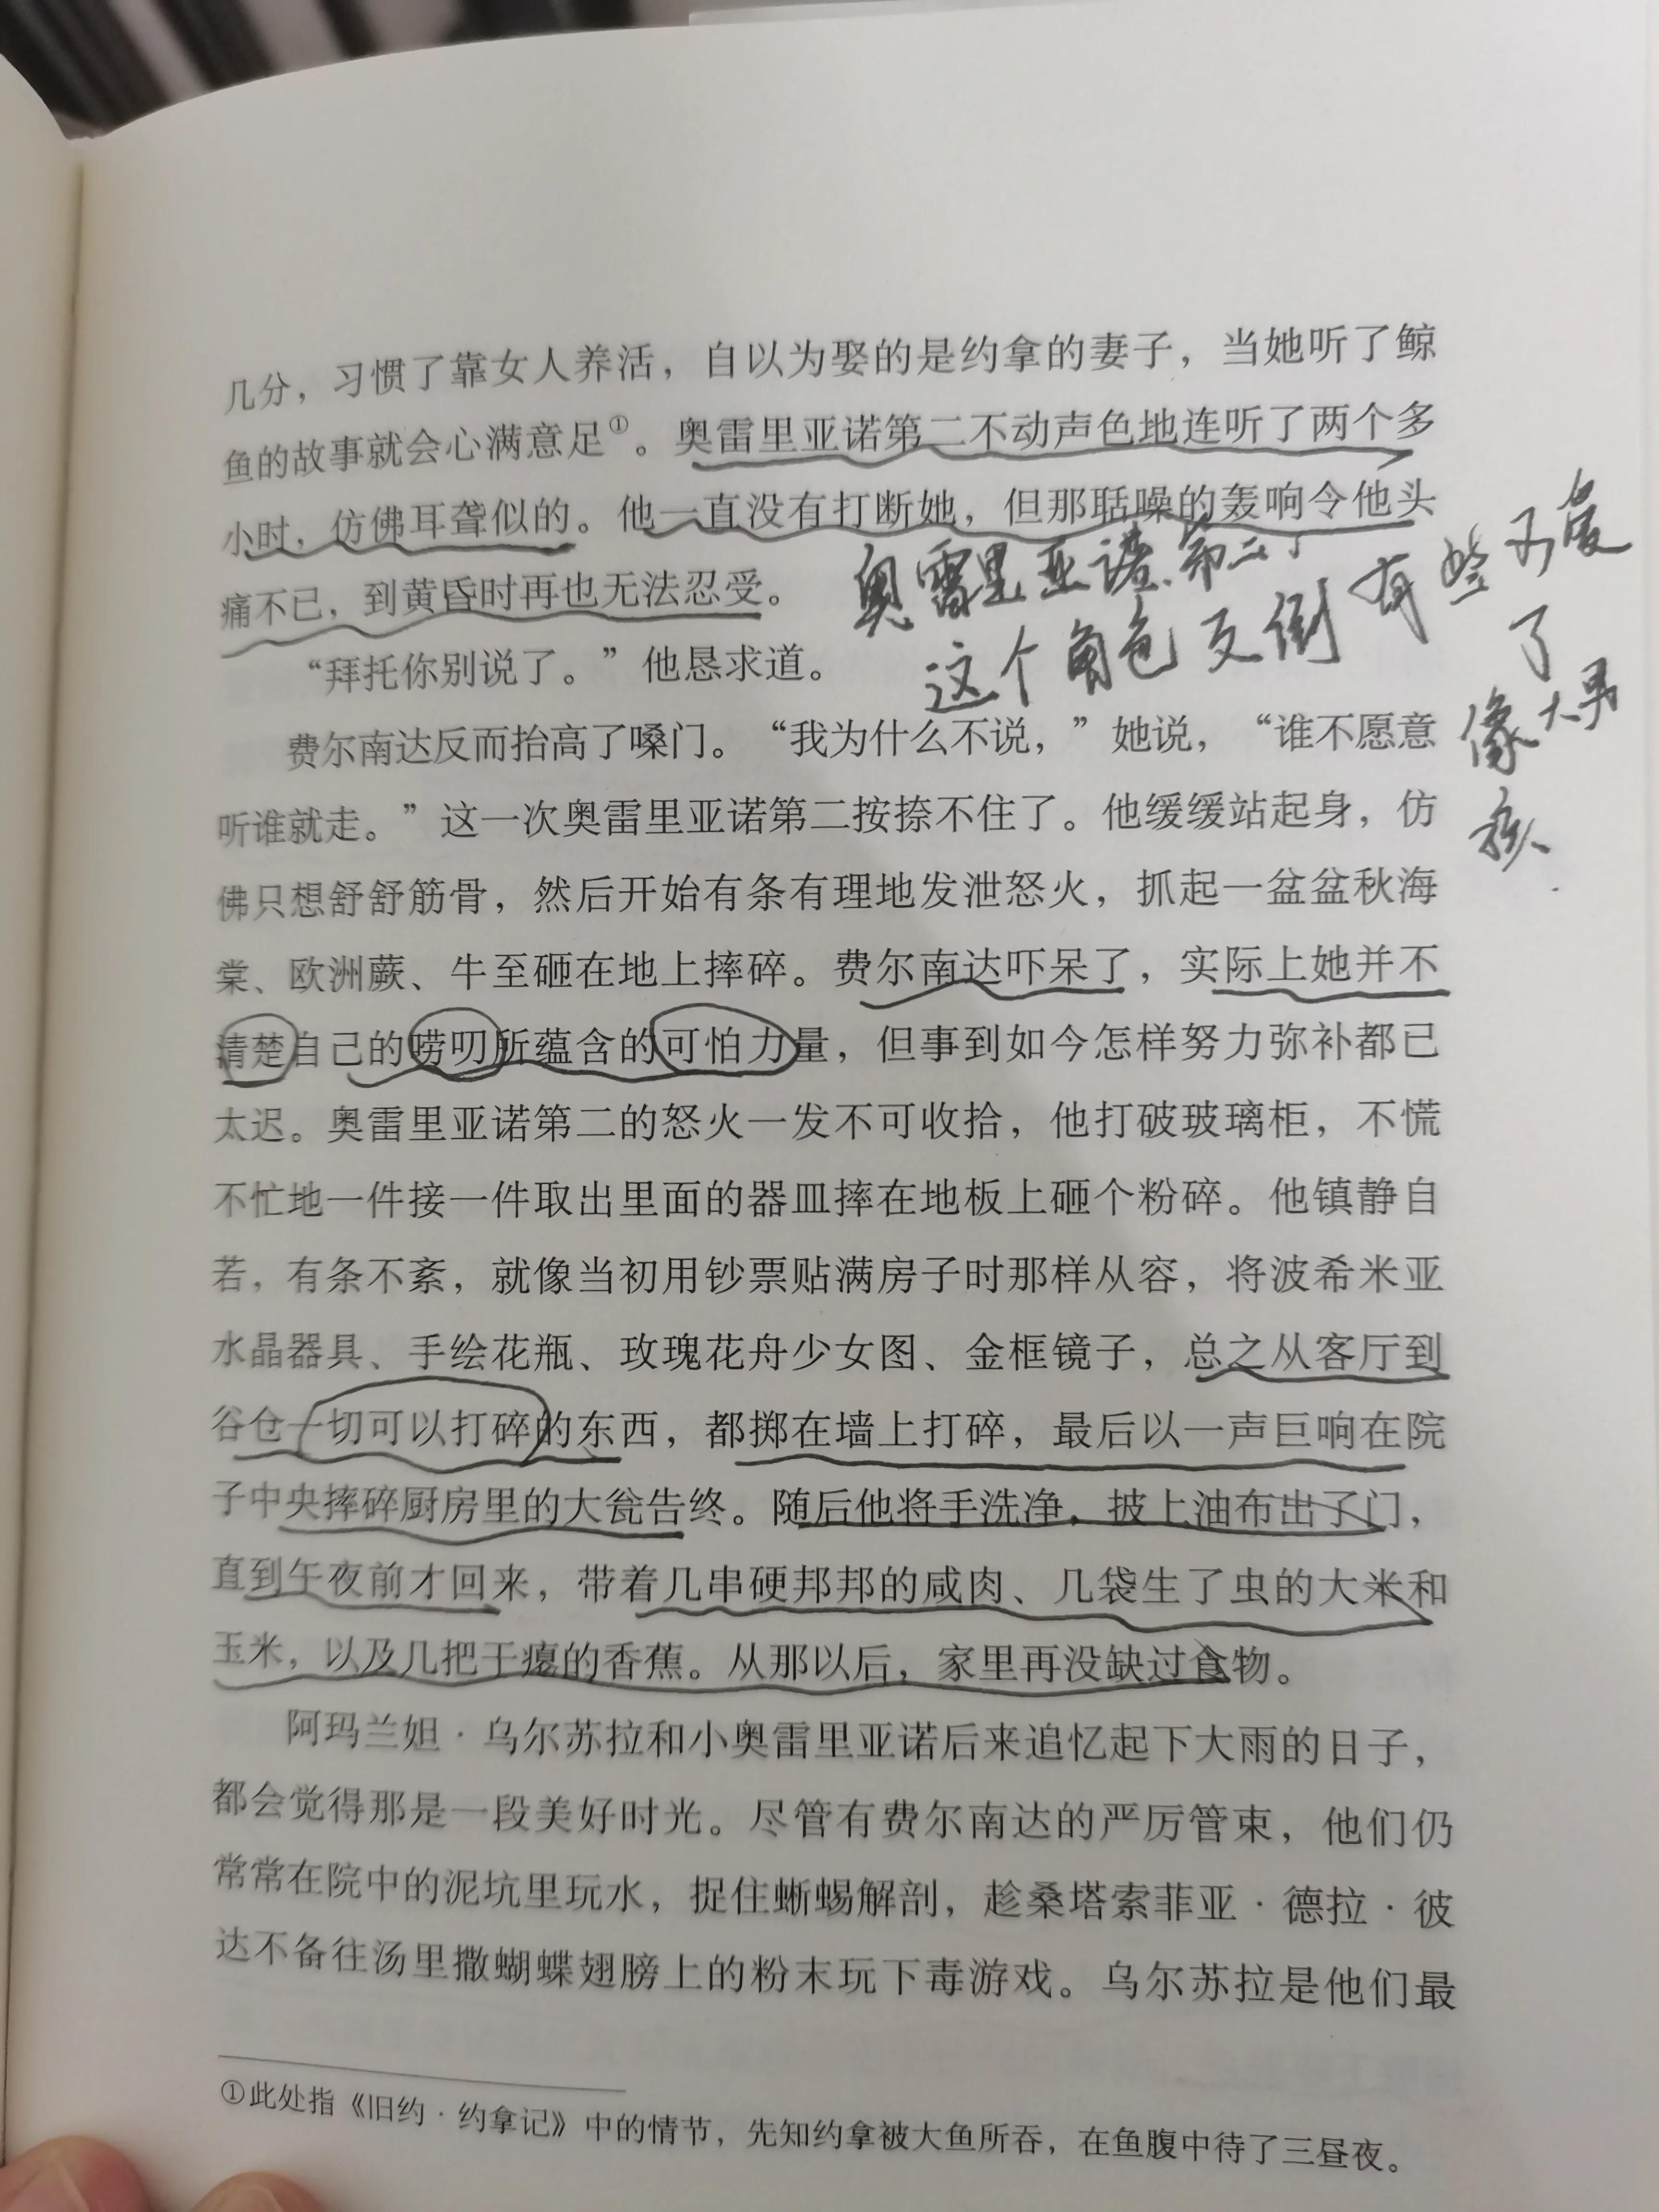 几分，习惯了靠女人养活，自以为娶的是约拿的妻子，当她听了鲸
鱼的故事就会心满意足①。奥雷里亚诺第二不动声色地连听了两个多
小时，仿佛耳聋似的。他一直没有打断她，但那聒噪的轰响令他头
痛不已，到黄昏时再也无法忍受。
奥雷里亚诺第二
这个角色反倒有些可爱
了
像大男
孩
“拜托你别说了。”他恳求道。
费尔南达反而抬高了嗓门。“我为什么不说，”她说，“谁不愿意
听谁就走。”这一次奥雷里亚诺第二按捺不住了。他缓缓站起身，仿
佛只想舒舒筋骨，然后开始有条有理地发泄怒火，抓起一盆盆秋海
棠、欧洲蕨、牛至砸在地上摔碎。费尔南达吓呆了，实际上她并不
清楚自己的唠叨所蕴含的可怕力量，但事到如今怎样努力弥补都已
太迟。奥雷里亚诺第二的怒火一发不可收拾，他打破玻璃柜，不慌
不忙地一件接一件取出里面的器皿摔在地板上砸个粉碎。他镇静自
若，有条不紊，就像当初用钞票贴满房子时那样从容，将波希米亚
水晶器具、手绘花瓶、玫瑰花舟少女图、金框镜子，总之从客厅到
谷仓一切可以打碎的东西，都掷在墙上打碎，最后以一声巨响在院
子中央摔碎厨房里的大瓮告终。随后他将手洗净，披上油布出了门，
直到午夜前才回来，带着几串硬邦邦的咸肉、几袋生了虫的大米和
玉米，以及几把干瘪的香蕉。从那以后，家里再没缺过食物。
阿玛兰妲·乌尔苏拉和小奥雷里亚诺后来追忆起下大雨的日子，
都会觉得那是一段美好时光。尽管有费尔南达的严厉管束，他们仍
常常在院中的泥坑里玩水，捉住蜥蜴解剖，趁桑塔索菲亚·德拉·彼
达不备往汤里撒蝴蝶翅膀上的粉末玩下毒游戏。乌尔苏拉是他们最
①此处指《旧约·约拿记》中的情节，先知约拿被大鱼所吞，在鱼腹中待了三昼夜。